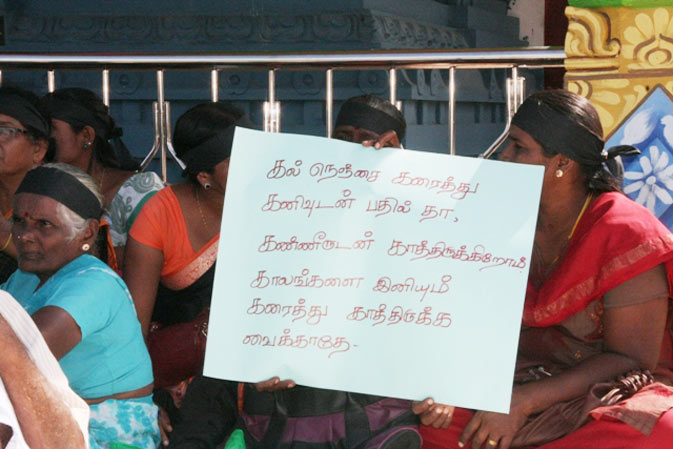 கல் நெஞ்சை கரைத்து
கனிவுடன் பதில் தா,
கண்ணீருடன் காத்திருக்கிறோம்
காலங்களை இனியும்
கரைத்து காத்திருக்க
வைக்காதே.